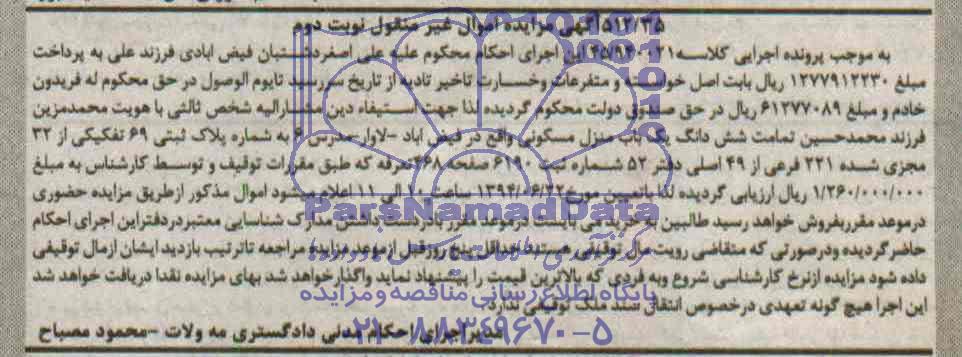 ۵۱۲/۳۵ آگهی مزایده اموال غیر منقول نوبت دوم
به موجب پرونده اجرایی کلاسه این اجرای احکام محکوم علیه علی اصغر فیض ابادی فرزند علی به پرداخت
مبلغ ۱۲۷۷۹۱۲۲۳۰ ریال بابت اصل و متفرعات وخسارت تاخیر تادیه از تاریخ سررسید تایوم الوصول در حق محکوم له فریدون
خادم و مبلغ ۶۱۳۷۷۰۸۹ ریال در حق دولت محکوم گردیده لذا جهت استیفاء دین مشارالیه شخص ثالثی با هویت محمدمزین
فرزند محمدحسین تمامت شش دانگ یک باب منزل مسکونی واقع در فیض اباد -لاوار-مدرس ۶ به شماره پلاک ثبتی ۶۹ تفکیکی از ۳۲
مجزی شده ۲۲۱ فرعی از ۴۹ اصلی دفتر ۵۲ شماره ثبت ۶۱۹۰ صفحه ۴۶۸ که طبق مقررات توقیف و توسط کارشناس به مبلغ
۱/۲۶۰/۰۰۰/۰۰۰ ریال ارزیابی گردیده لذا باتعیین مورخ ۱۳۹۴/۰۶/۲۲ ساعت ۱۰ الی ۱۱ اعلام میشود اموال مذکور ازطریق مزایده حضوری
درموعد مقرربفروش خواهد رسید طالبین می بایست درموعد مقرر بادردست داشتن مدارک شناسایی معتبردردفتراین اجرای احکام
حاضرگردیده ودرصورتی که متقاضی رویت مال توقیفی هستند حداقل پنج روزقبل ازموعد مزایده مراجعه تاترتیب بازدید ایشان ازمال توقیفی
داده شود مزایده ازنرخ کارشناسی شروع وبه فردی که بالاترین قیمت را پیشنهاد نماید واگذارخواهد شد بهای مزایده نقدا دریافت خواهد شد
این اجرا هیچ گونه تعهدی درخصوص انتقال سند ملک توقیفی ندارد.
مدیر اجرای احکام مدنی دادگستری مه ولات -محمود مصباح
ParsNamadData
پایگاه اطلاع رسانی مناقصه ومزایده
۰۲۱-۸۸۳۴۹۶۷۰-۵